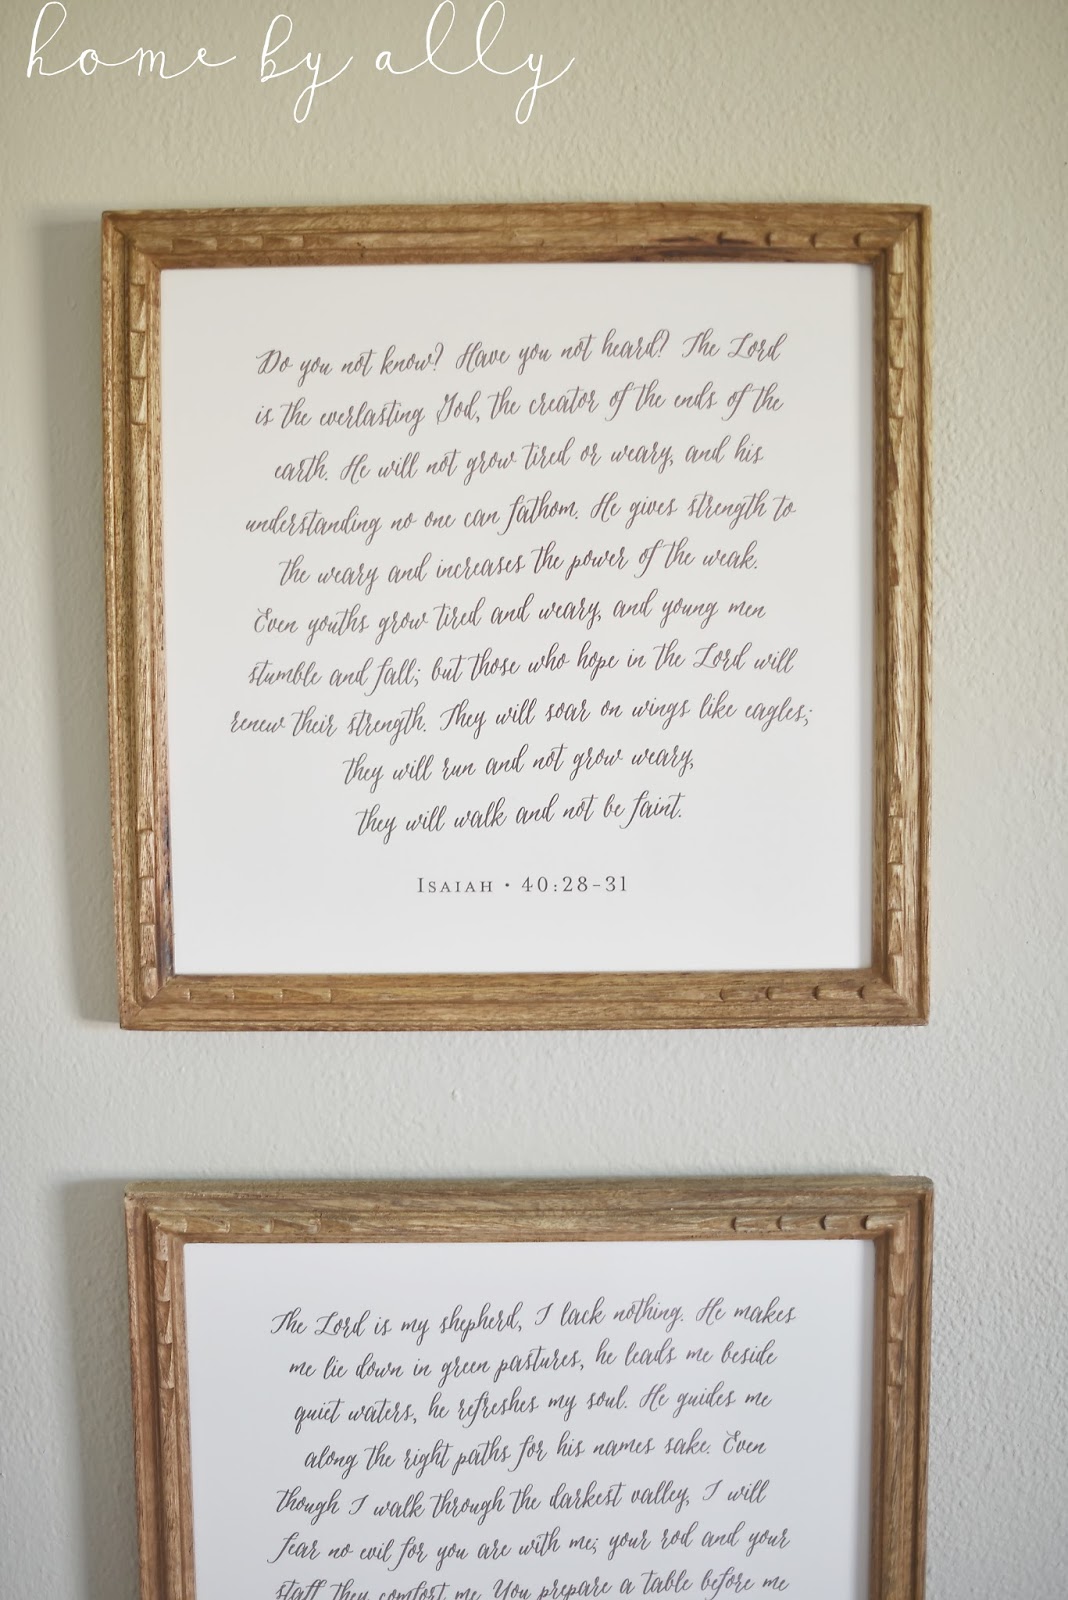 home by ally
Do you not know? Have you not heard? The Lord
is the everlasting God, the creator of the ends of the
earth. He will not grow tired or weary, and his
understanding no one can fathom. He gives strength to
the weary and increases the power of the weak.
Even youths grow tired and weary, and young men
stumble and fall; but those who hope in the Lord will
renew their strength. They will soar on wings like eagles;
they will run and not grow weary,
they will walk and not be faint.
Isaiah • 40:28-31
The Lord is my shepherd, I lack nothing. He makes
me lie down in green pastures, he leads me beside
quiet waters, he refreshes my soul. He guides me
along the right paths for his names sake. Even
though I walk through the darkest valley, I will
fear no evil for you are with me; your rod and your
staff they comfort me. You prepare a table before me